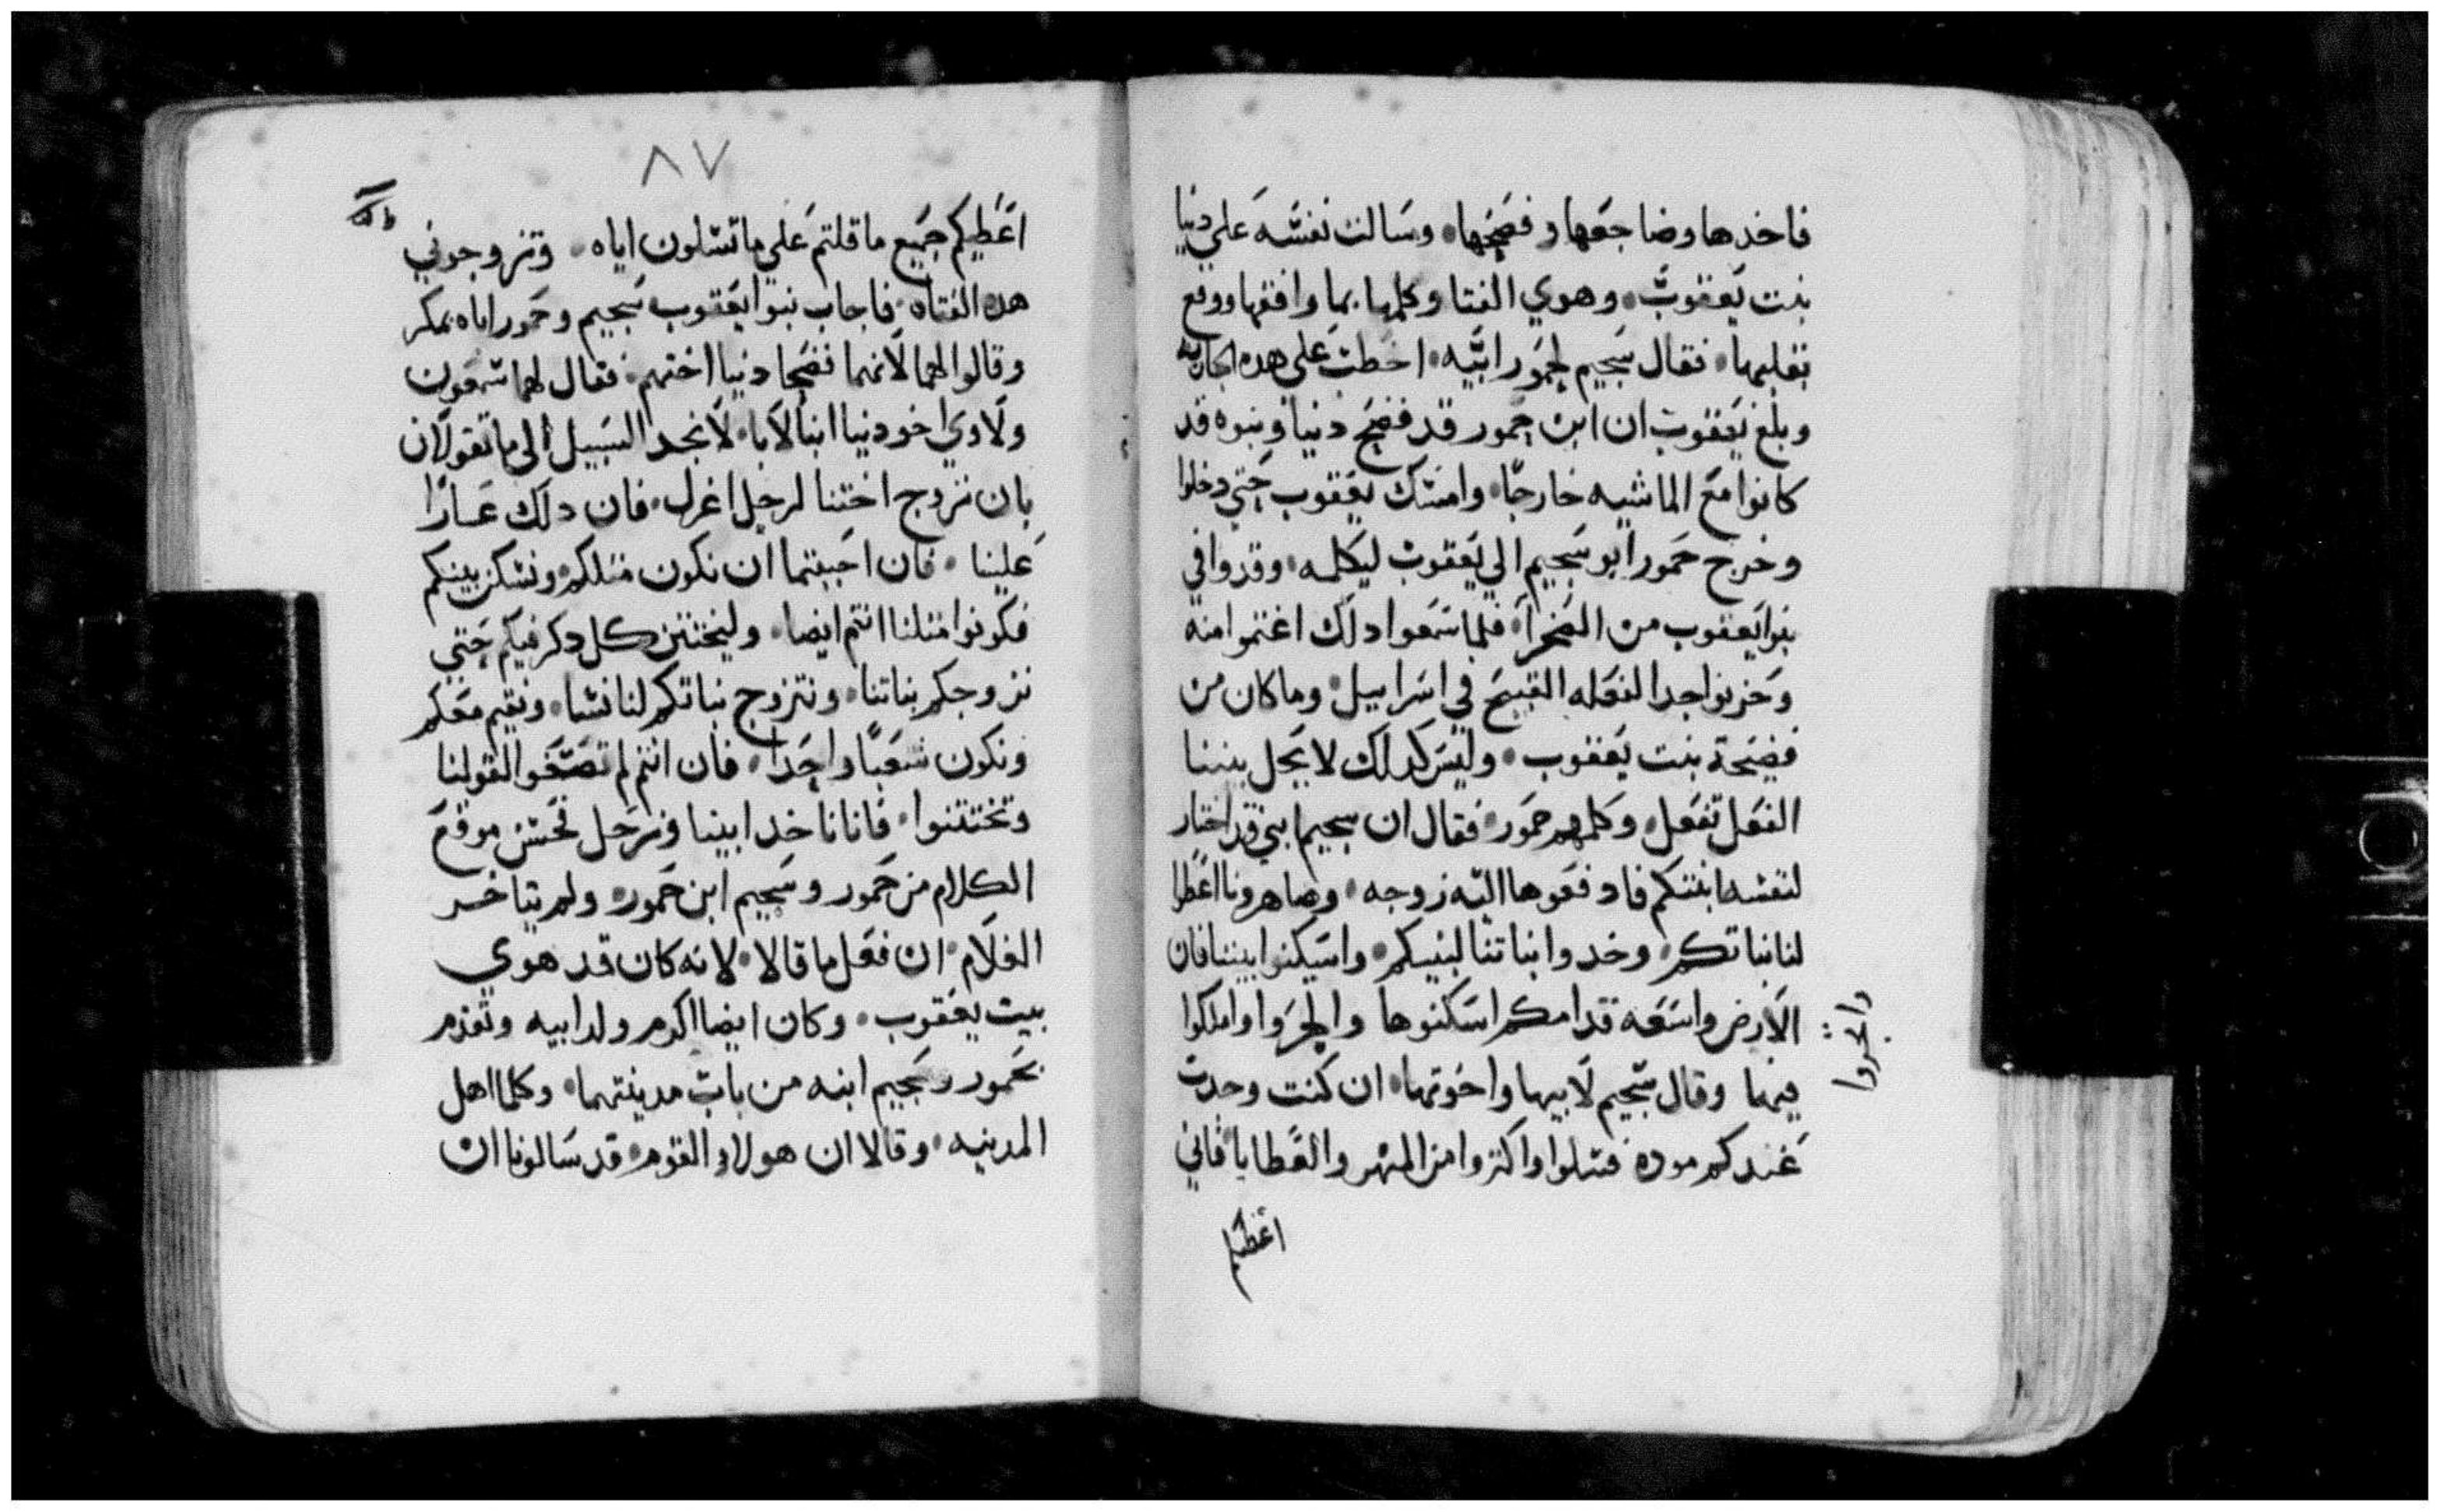 فاخدها وضاجعها وفضحها وسالت نفسه علي دنيا
بنت يعقوب وهوي الفتا وكلمها بما وافقها ووقع
بقلبها فقال سجيم لحمور ابيه اخطب علي هده الجاريه
وبلغ يعقوب ان ابن حمور قد فضح دنيا وبنوه قد
كانوا مع الماشيه خارجا وامسك يعقوب حتي دخلوا
وخرج حمور ابو سجيم الي يعقوب ليكلمه وقدوافي
بنوا يعقوب من الصحرا فلما سمعوا دلك اغتموا منه
وحزنوا جدا لفعله القبيح في اسراييل وما كان من
فضيحة بنت يعقوب وليس كدلك لا يحل بيننا
الفعل تفعل وكلمهم حمور فقال ان سجيم ابني قد اختار
لنفسه ابنتكم فادفعوها اليه زوجه وصاهرونا اعطوا
لنا بناتكم وخدوا بناتنا لبنيكم واسكنوا بيننا فان
الارض واسعه قدامكم اسكنوها واتجروا واملكوا
واتجروا
فيها وقال سجيم لابيها واخوتها ان كنت وجدت
عندكم موده فسلوا واكثروا من المهر والعطايا فاني
اعطيكم
٨٧
اعطيكم جميع ما قلتم علي ما تسلون اياه وتزوجوني
هده الفتاه فاجاب بنوا يعقوب سجيم وحمور اباه بمكر
وقالوا لهما لانهما فضحا دنيا اختهم فقال لهما شمعون
ولاوي اخو دنيا ابنا لايا لا نجد السبيل الي ما تقولان
بان نزوج اختنا لرجل اغرل فان دلك عارا
علينا فان احببتما ان نكون متلكم ونسكن بينكم
فكونوا متلنا انتم ايضا وليختتن كل دكر فيكم حتي
نزوجكم بناتنا ونتزوج بناتكم لنا نسا ونقيم معكم
ونكون شعبا واحدا فان انتم لم تصغوا لقولنا
وتختتنوا فاننا ناخد ابنتنا ونرحل فحسن موقع
الكلام من حمور وسجيم ابن حمور ولم يتاخر
الغلام ان فعل ما قالا لانه كان قد هوي
بيت يعقوب وكان ايضا اكرم ولد ابيه وتقدم
حمور وسجيم ابنه من باب مدينتهما وكلما اهل
المدينه وقالا ان هولاء القوم قد سالونا ان